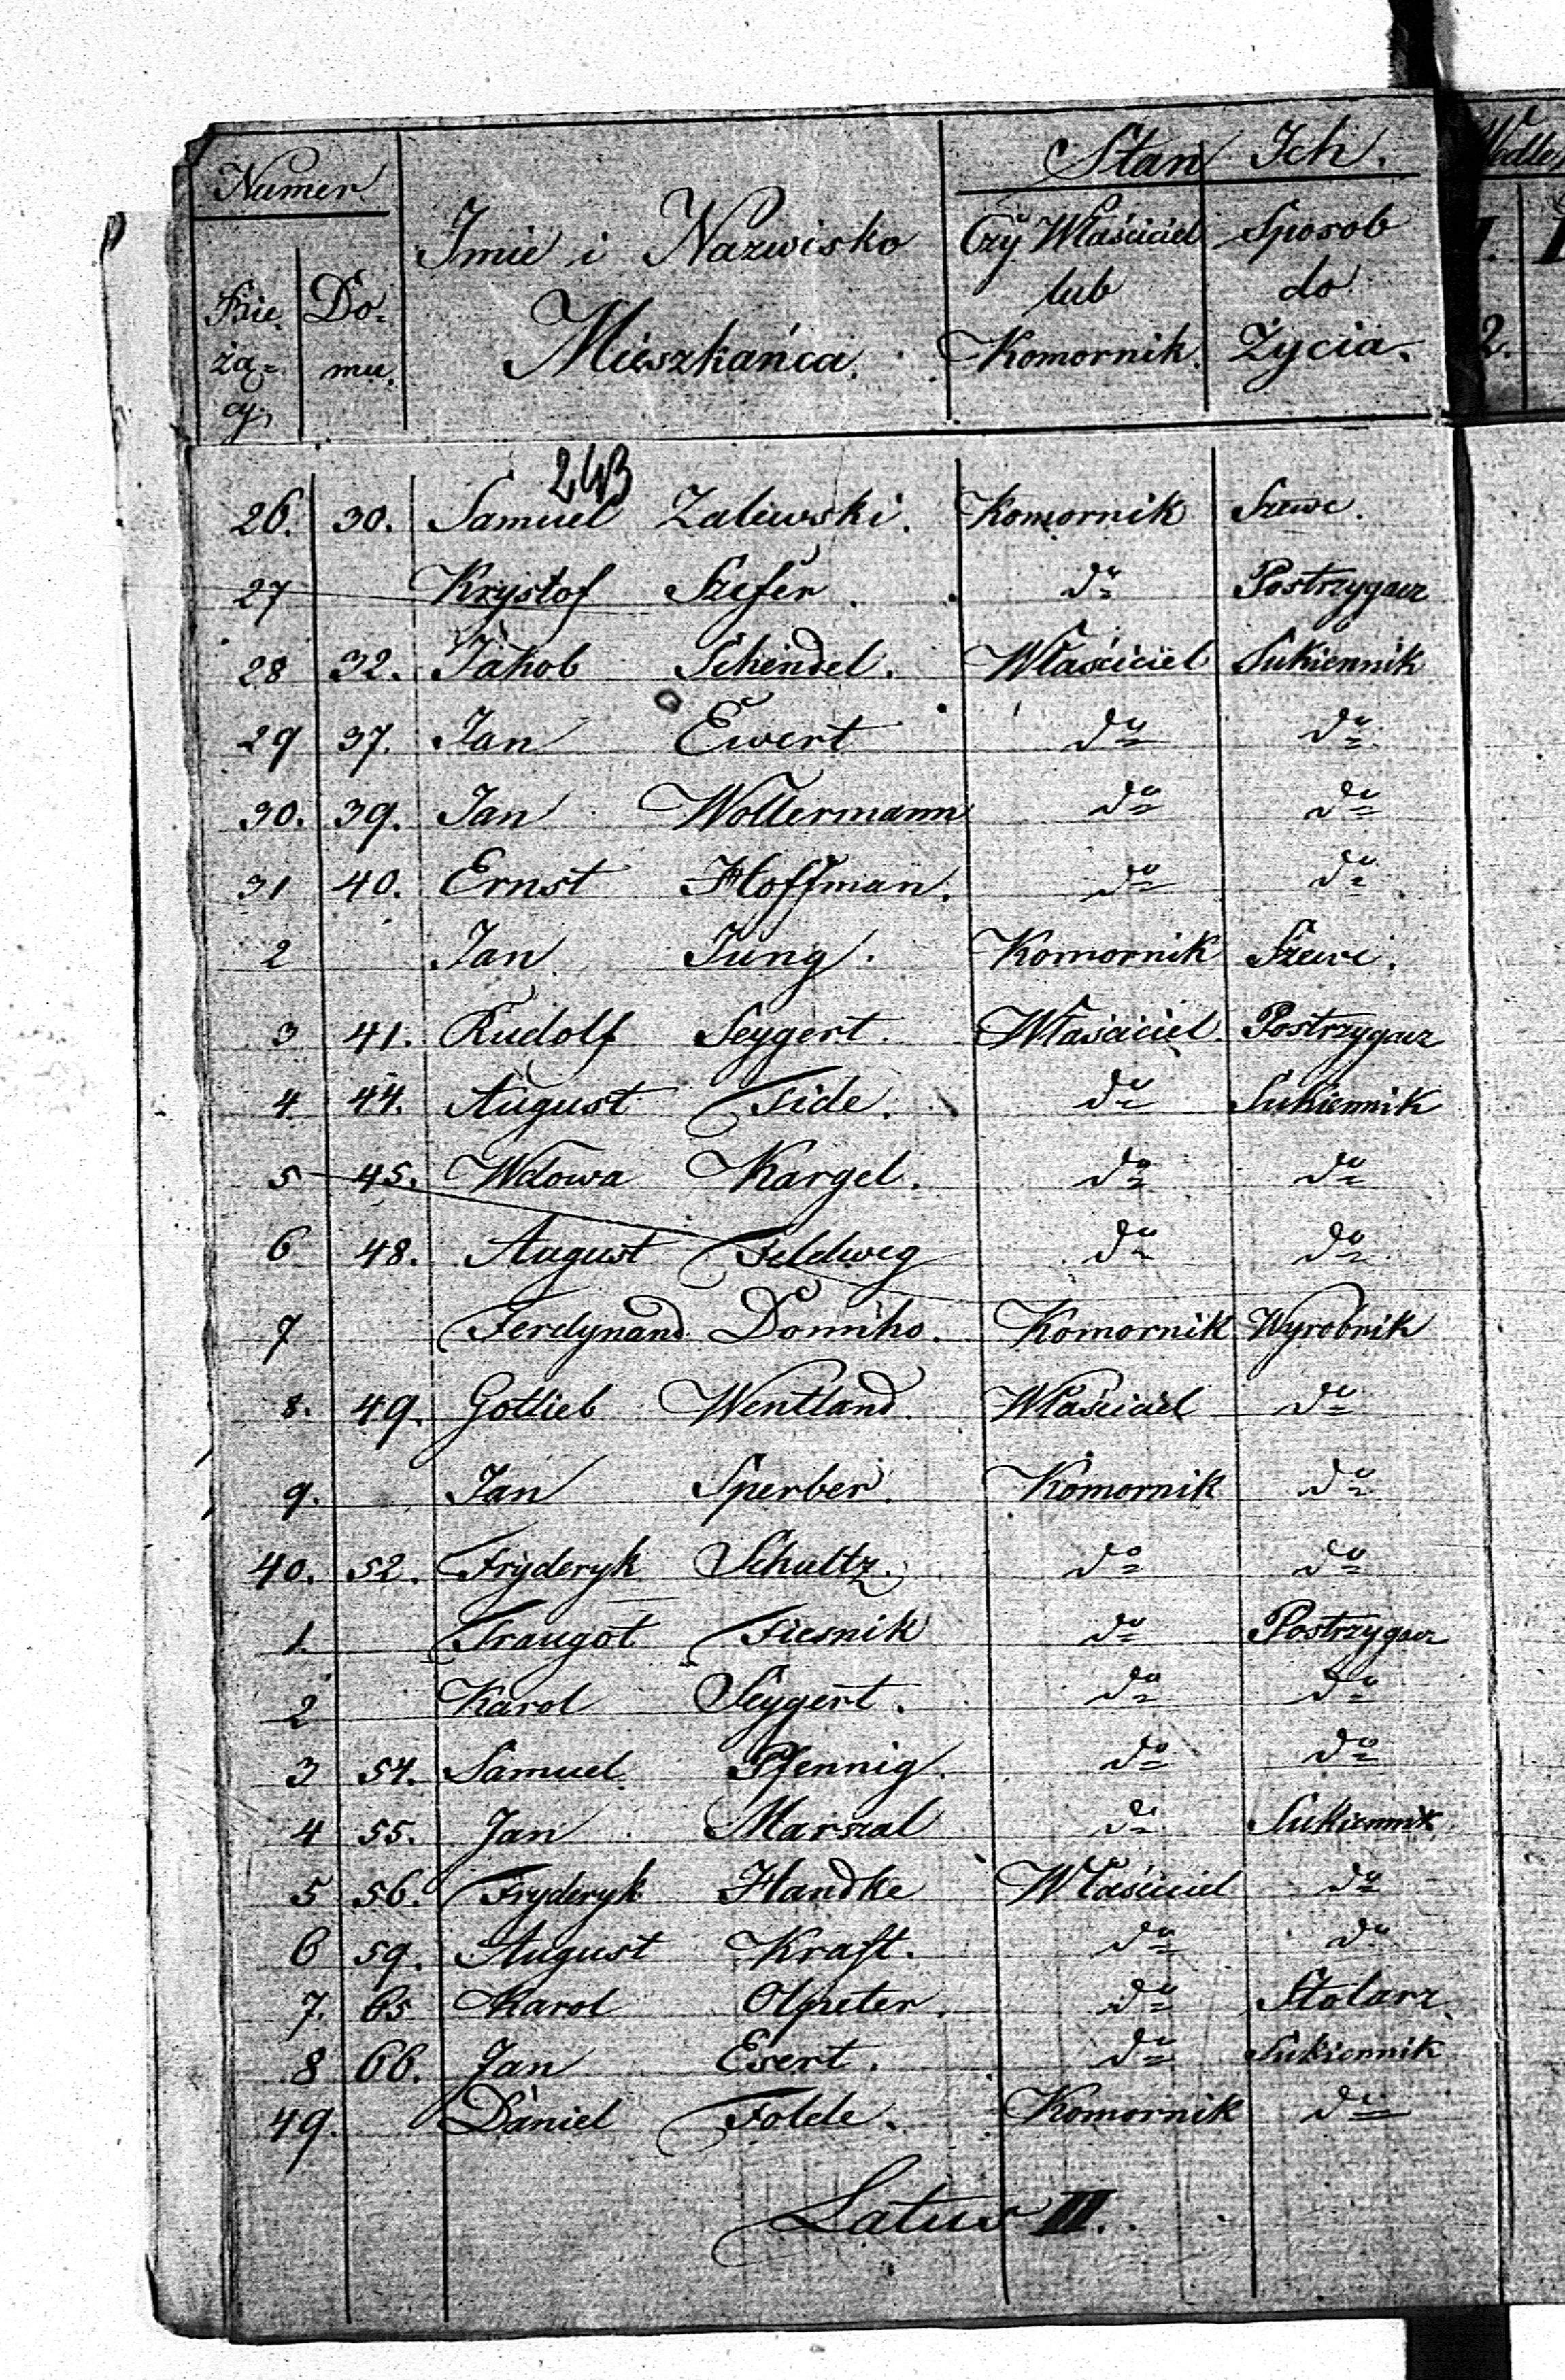 Numer. Stan Ich. Wedle
Bie- Do- Imie i Nazwisko Czy Właściciel Sposob
żą- mu. Mieszkańca. lub do
cy. Komornik. Życia. 2.
243
26. 30. Samuel Zalewski. Komornik Szewc.
27 Krystof Szefer. do Postrzygacz
28 32. Jakob Schendel. Właściciel Sukiennik
29 37. Jan Ewert do do
30. 39. Jan Woltermann do do
31 40. Ernst Hoffman. do do
2 Jan Jung. Komornik Szewc.
3 41. Rudolf Seygert. Właściciel. Postrzygacz
4 44. August Tide. do Sukiennik
5 45. Wdowa Kargel. do do
6 48. August Feldweg do do
7 Ferdynand Domiho. Komornik Wyrobnik
8. 49. Gotlieb Wentland. Właściciel do
9. Jan Sperber. Komornik do
40. 52. Fryderyk Schultz. do do
1. Traugot Fiesnik do Postrzygacz
2 Karol Seygert. do do
3 54. Samuel Pfennig. do do
4 55. Jan Marszal do Sukiennik
5 56. Fryderyk Handke Właściciel do
6 59. August Kraft. do do
7. 65 Karol Olpeter. do Stolarz.
8 66. Jan Esert. do Sukiennik
49. Daniel Folde. Komornik do
Latus II.